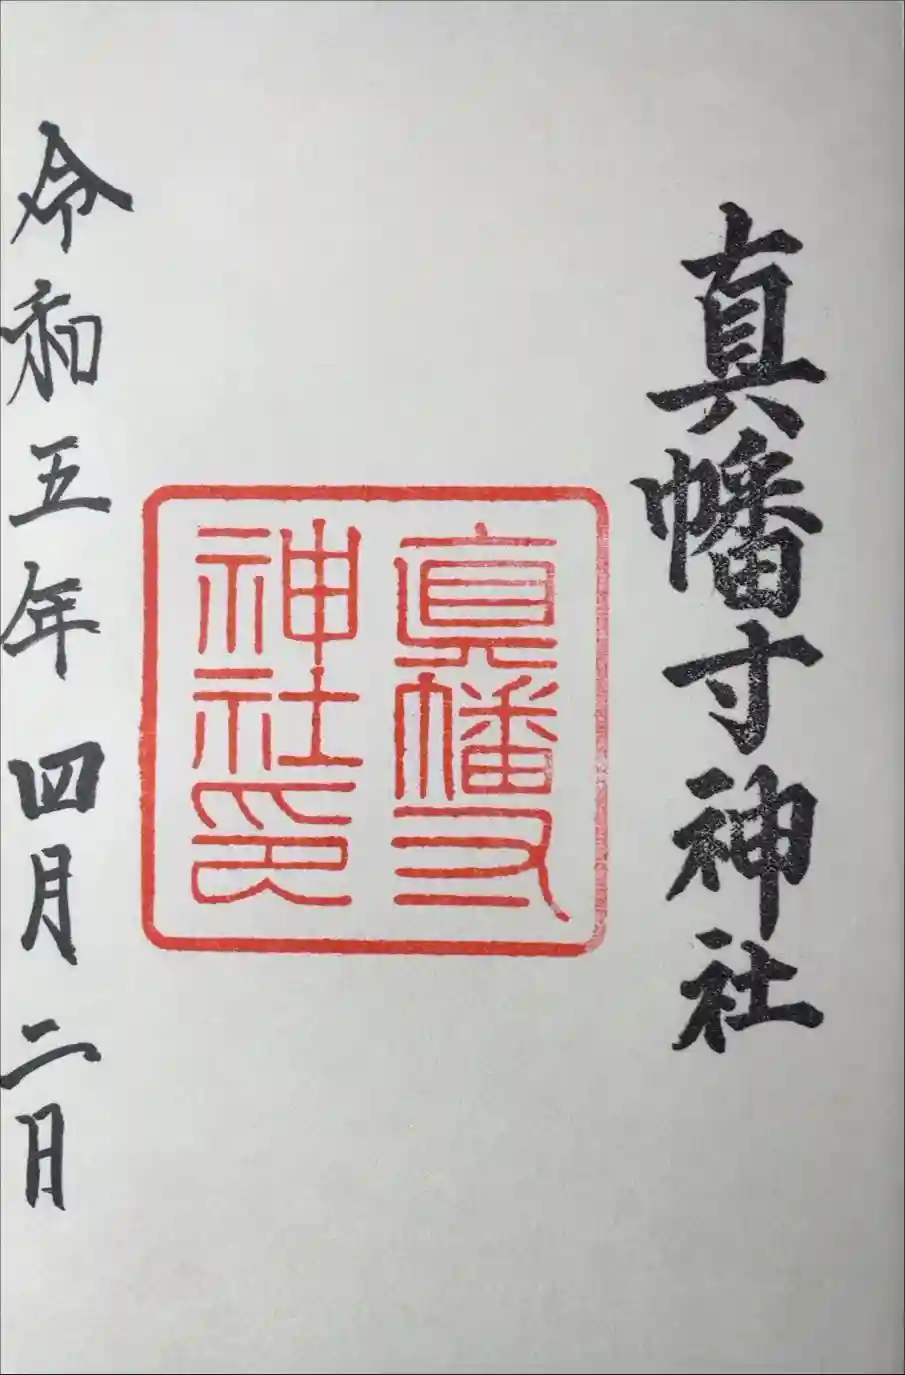 真幡寸神社
真幡寸
神社印
令和五年四月二日